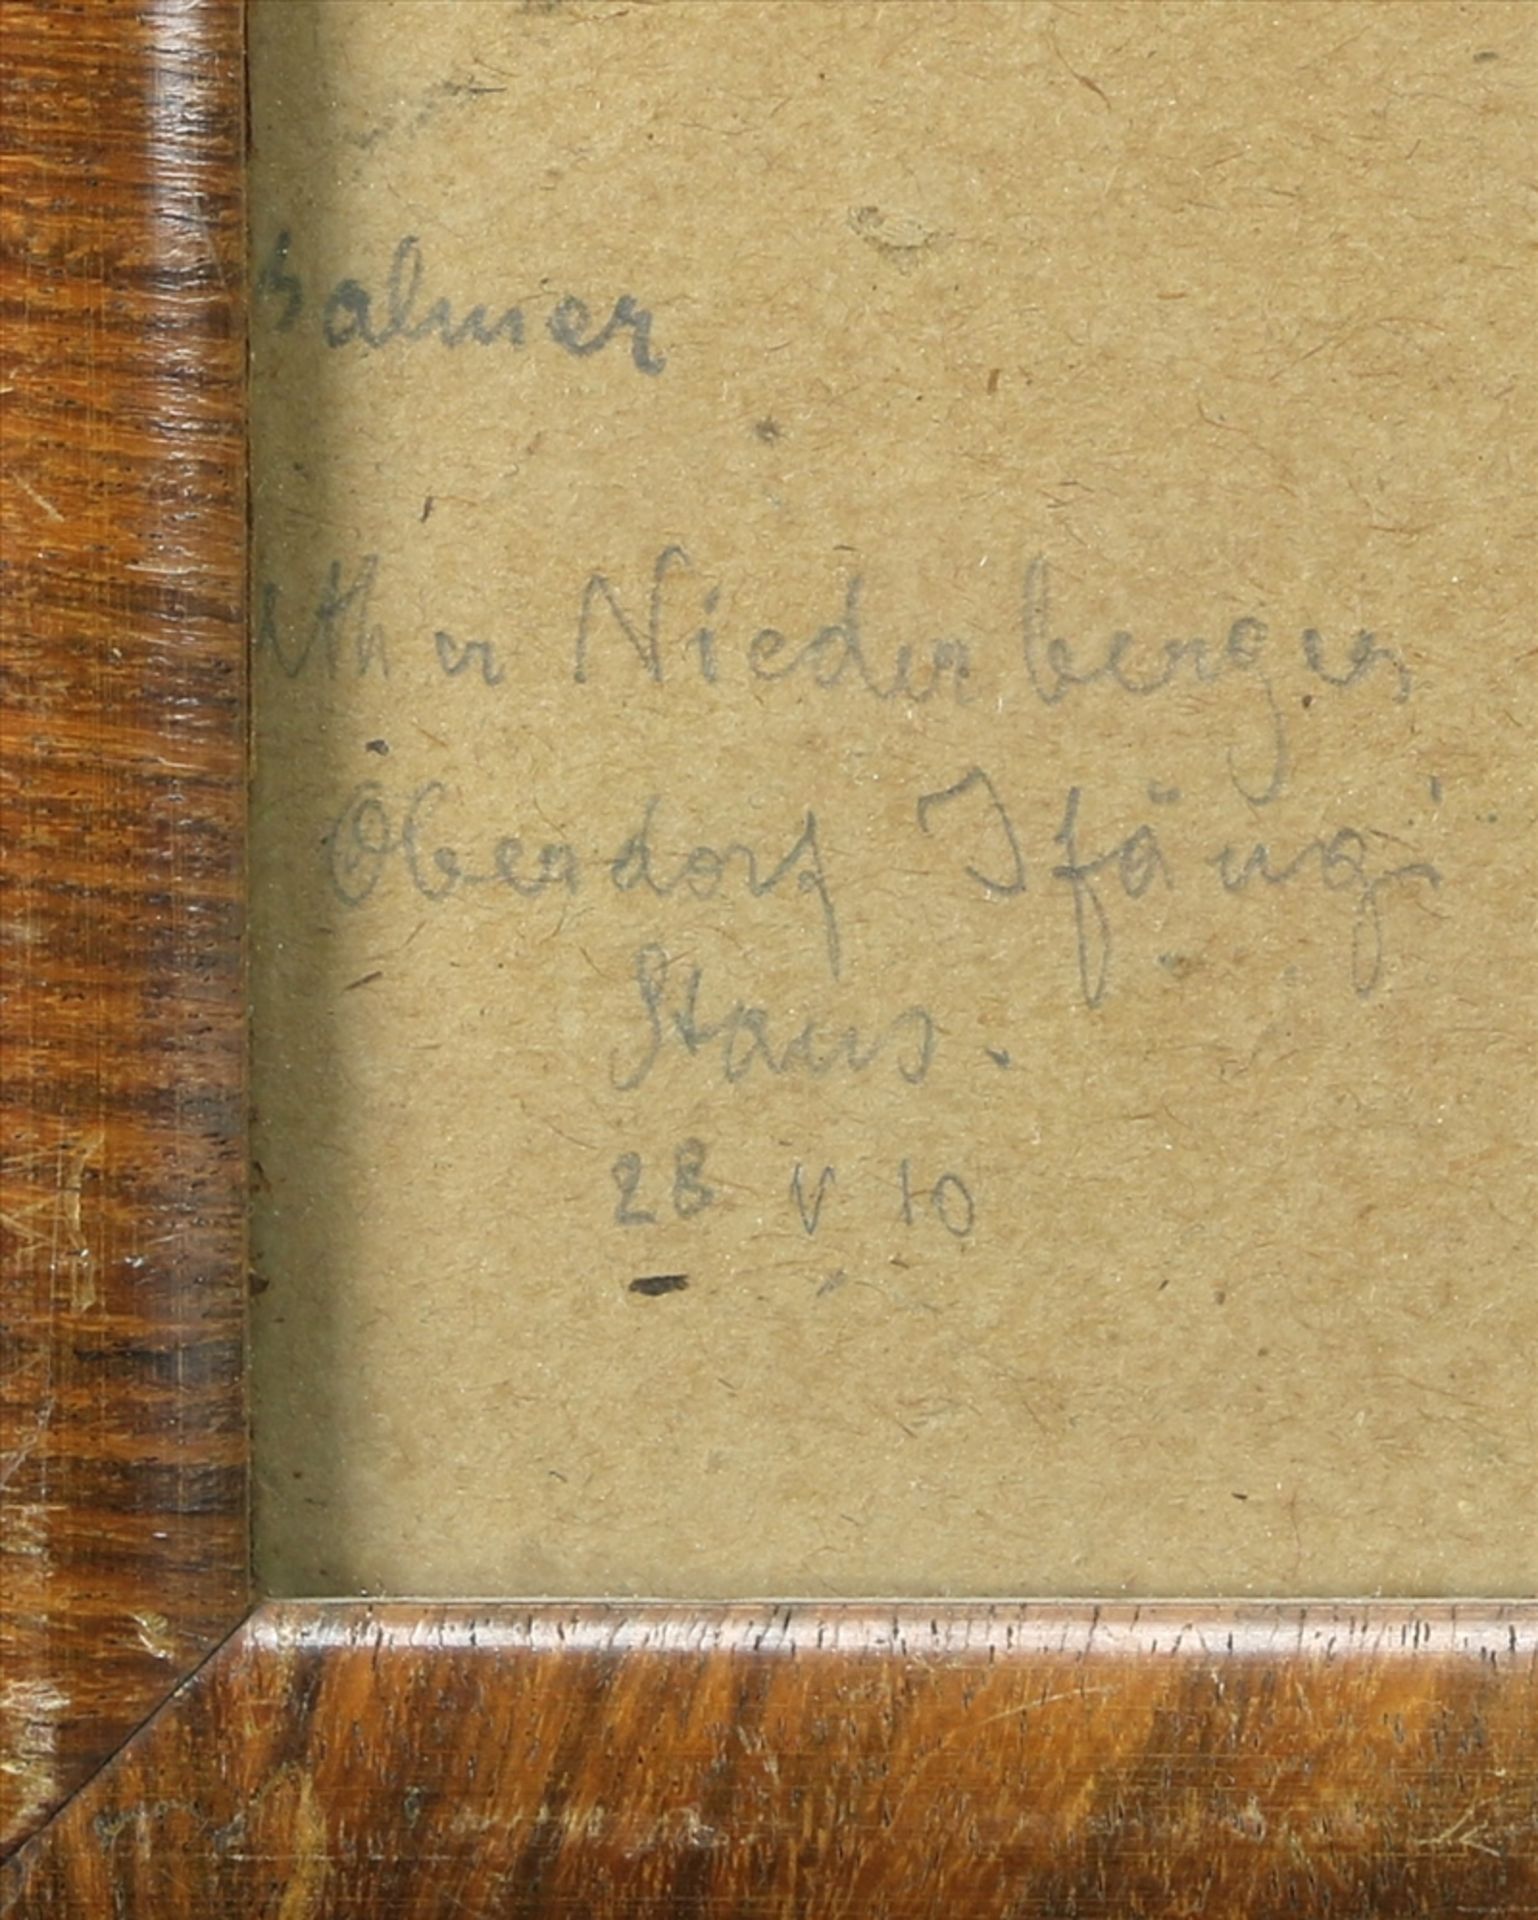 Balmer
Niederberger
Oberdorf Ifängi
Stans.
28 V 10